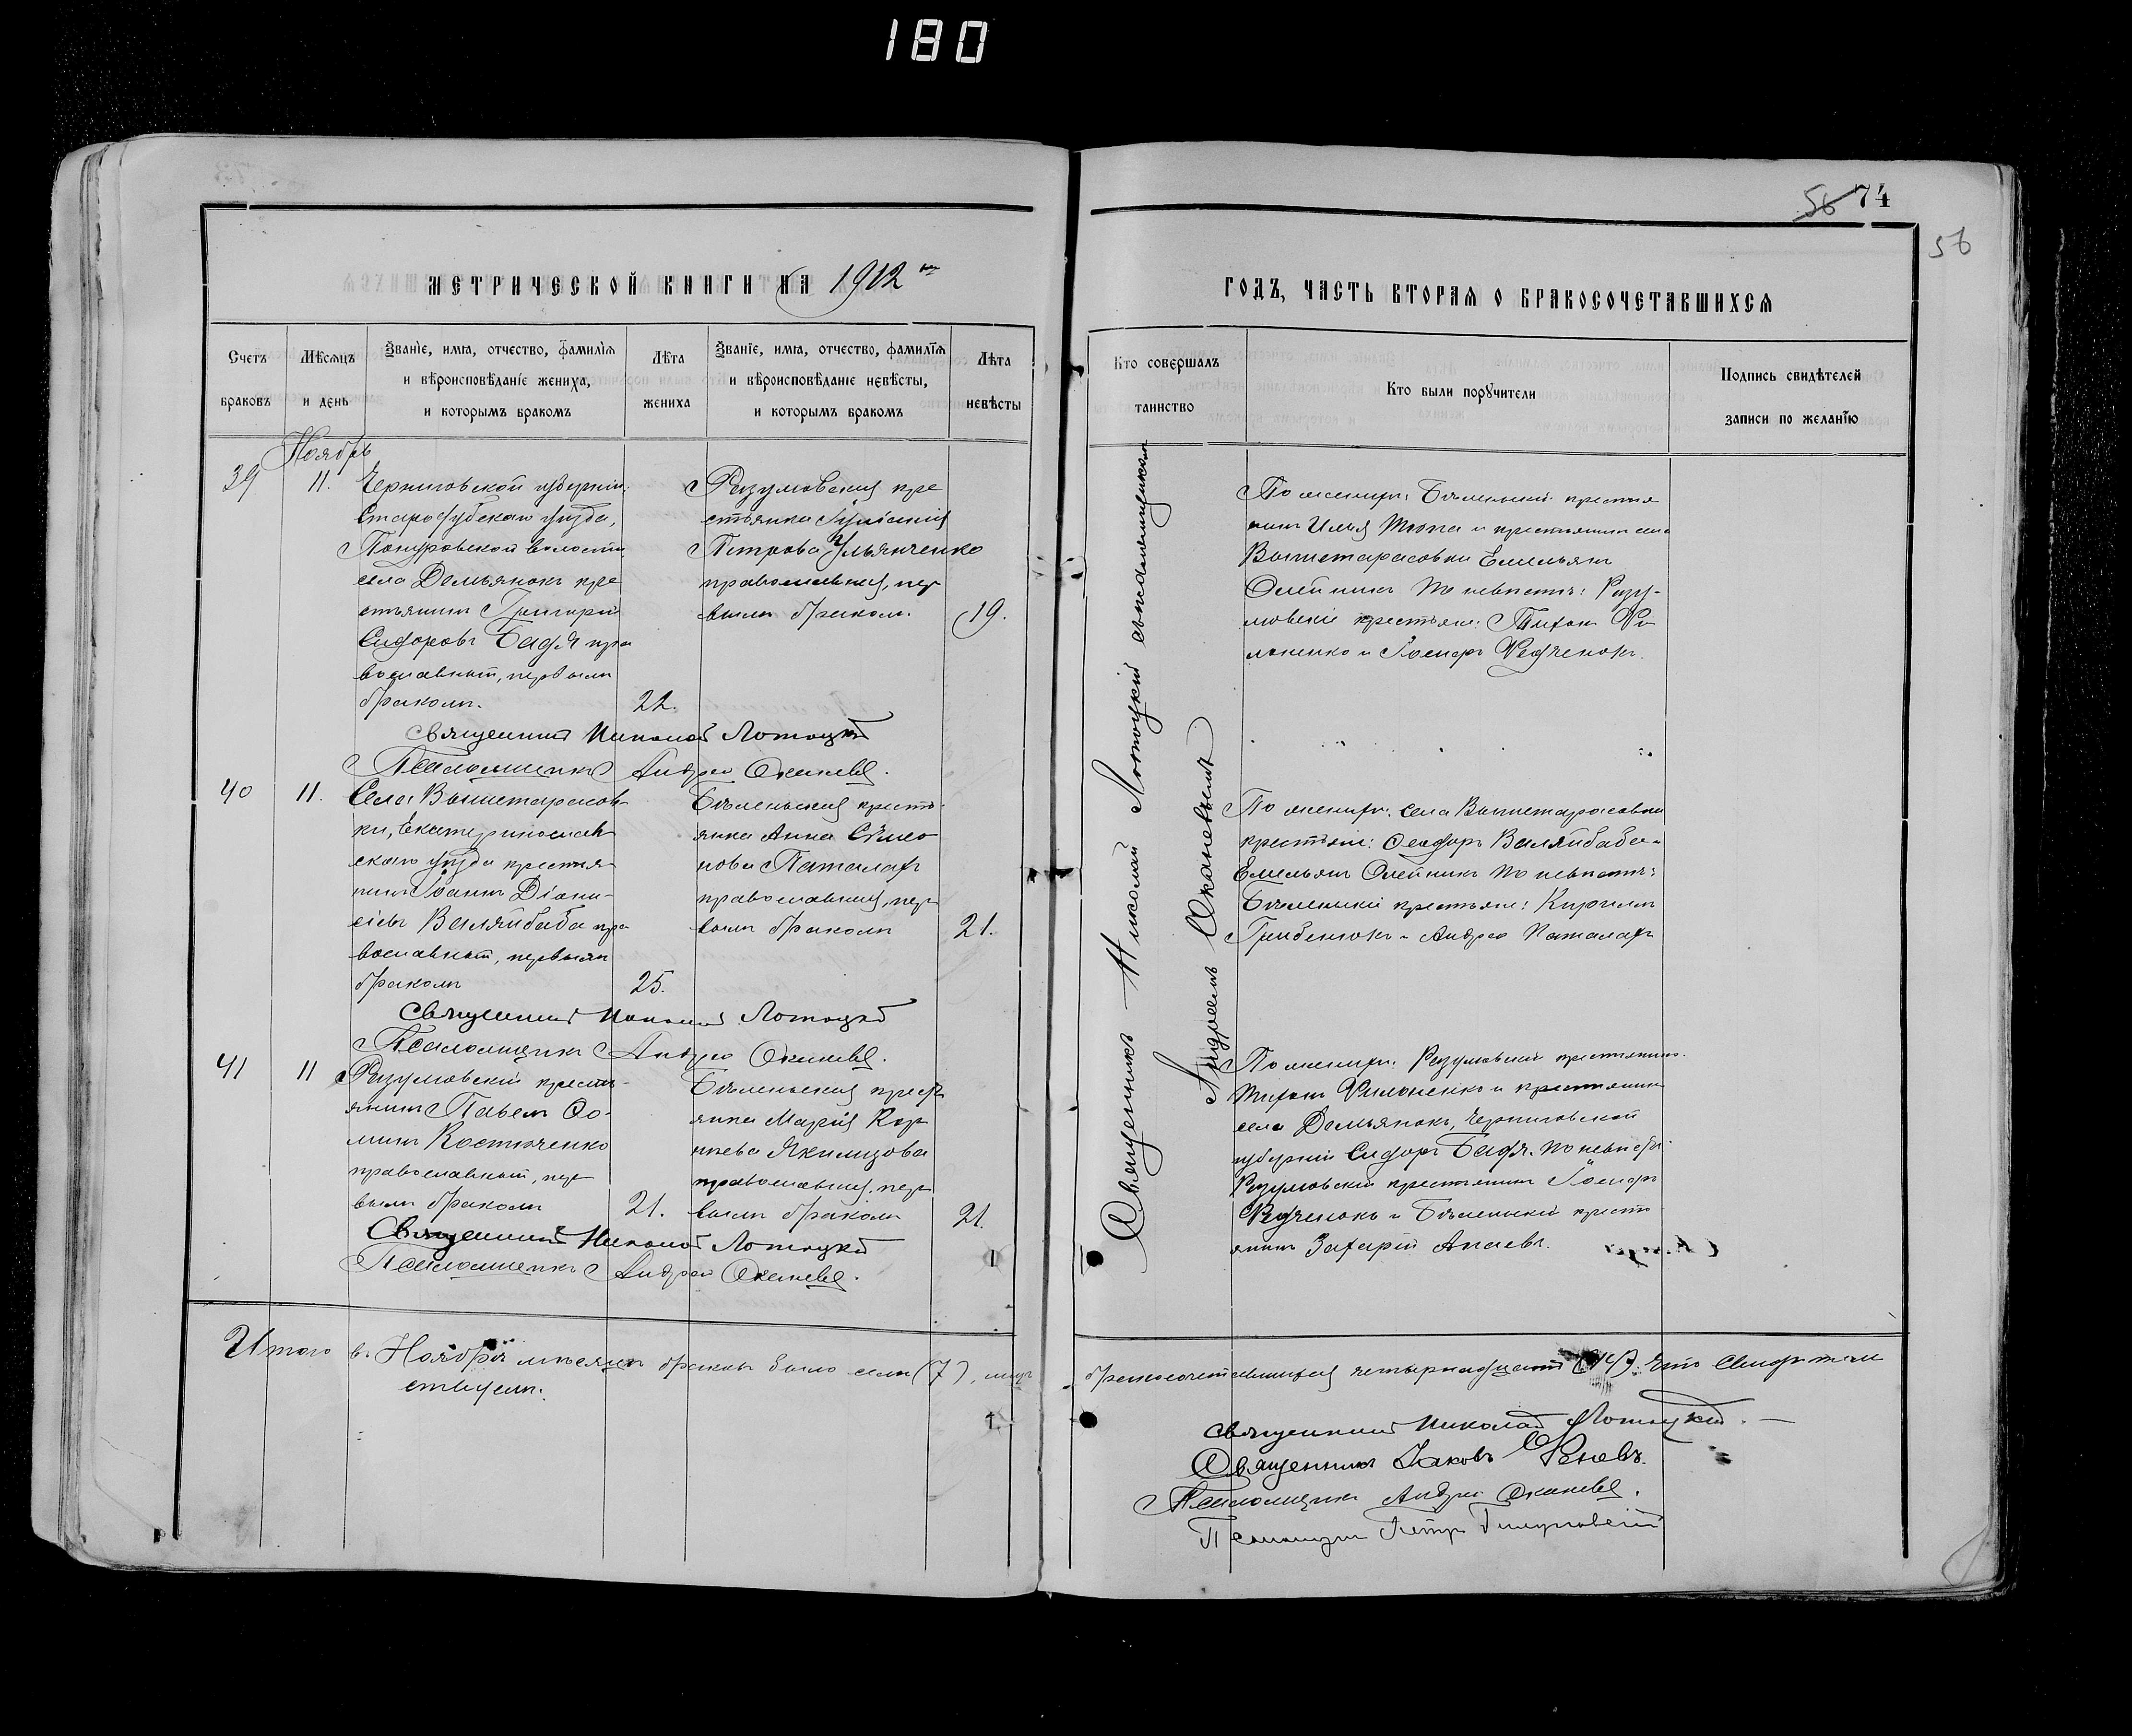 180
56 74
56
МЕТРИЧЕСКОЙ КНИГИ НА 1912
ГОДЪ, ЧАСТЬ ВТОРАЯ О БРАКОСОЧЕТАВШИХСЯ
Счетъ браковъ
Мѣсяцъ и день
Званіе, имя, отчество, фамилія и вѣроисповѣданіе жениха, и которымъ бракомъ
Лѣта жениха
Званіе, имя, отчество, фамилія и вѣроисповѣданіе невѣсты, и которымъ бракомъ
Лѣта невѣсты
Кто совершалъ таинство
Кто были поручители
Подпись свидѣтелей записи по желанію
Ноябрь
39
11.
Черниговской губерніи,
Стародубскаго уѣзда,
Понуровской волости
села Демьянокъ кре
стьянинъ Григорій
Сидоровъ Бадя пра
вославный, первымъ
бракомъ.
22.
Розумовская кре
стьянка
Петрова Ульянченко
православная, пер
вымъ бракомъ.
19.
По женихѣ: Бѣленькій крестья
нинъ Илья Тюпа и крестьянинъ села
Вышетарасовки Емельянъ
Олейникъ По невѣстѣ: Розу-
мовскіе крестьяне: Тихонъ Фи
лоненко и Іосифъ Федченокъ.
Священникъ Николай Лотоцкій
Псаломщикъ Андрей Оканевъ.
40
11.
Села Вышетарасов-
ки, Екатеринослав
скаго уѣзда крестья-
нинъ Іоаннъ Діони-
сіевъ Валяйбаба пра
вославный, первымъ
бракомъ
25.
Бѣленьская кресть-
янка Анна Симо
нова Паталахъ
православная, пер
вымъ бракомъ
21.
По женихѣ: села Вышетарасовки
крестьяне: Ѳеодоръ Валяйбаба и
Емельянъ Олейникъ По невѣстѣ:
Бѣленькіе крестьяне: Кириллъ
Грибенюкъ и Андрей Паталахъ
Священникъ Николай Лотоцкій
Псаломщикъ Андрей Оканевъ.
41
11
Розумовскій кресть-
янинъ Павелъ Ѳо-
минъ Костюченко
православный, пер
вымъ бракомъ
21.
Бѣленьская кресть
янка Марія Кор
ніева Якимцова
православная, пер
вымъ бракомъ
21.
По женихѣ: Розумовскій крестьянинъ
Тихонъ Филоненко и крестьянинъ
села Демьянокъ, Черниговской
губерніи Сидоръ Бадя. По невѣстѣ:
Розумовскій крестьянинъ Іосифъ
Федченокъ и Бѣленькій кресть
янинъ Захарій Апаевъ.
Священникъ Николай Лотоцкій
Псаломщикъ Андрей Оканевъ.
Священникъ Николай Лотоцкій съ псаломщикомъ
Андреемъ Оканевымъ
Итого въ Ноябрѣ мѣсяцѣ браковъ было семь (7), лицъ
бракосочетавшихся четырнадцать (14). Что свидѣтель
ствуемъ:
Священникъ Николай Лотоцкій.
Священникъ Іаковъ
Псаломщикъ Андрей Оканевъ.
Псаломщикъ Петръ